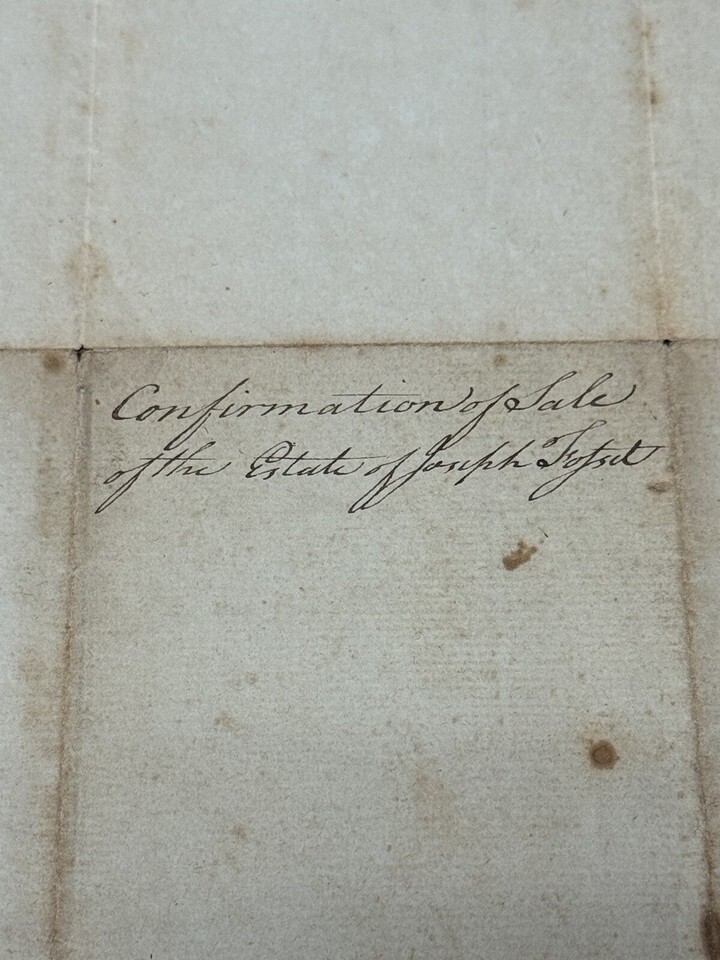 Confirmation of Sale
of the Estate of Joseph Fosset